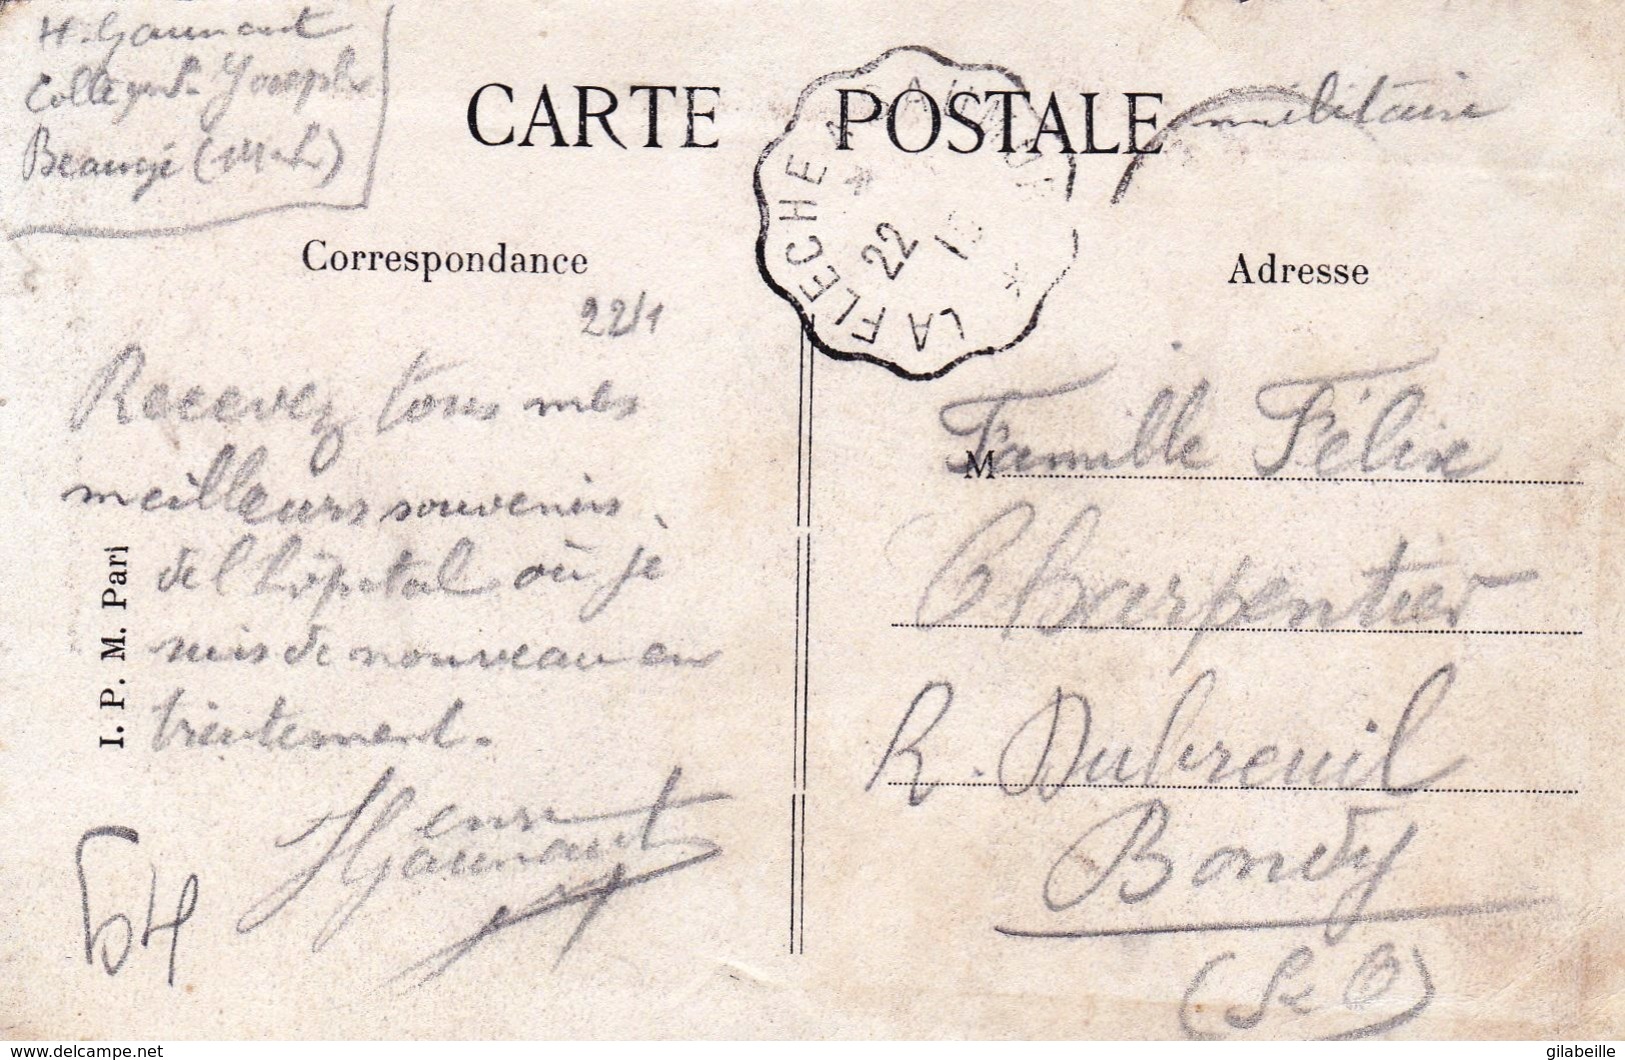 H. Gaunaut
College St Joseph
Beaugé (M-L)
CARTE POSTALE
militaire
LA FLECHE
22
Correspondance
Adresse
22/1
Recevez tous mes
meilleurs souvenirs
de l'hôpital où je
suis de nouveau en
trientement.
Henri
Gaunaut
54
I. P. M. Pari
M Famille Félix
Charpentier
R. Dubreuil
Bondy
(Se O)
delcampe.net
gilabeille